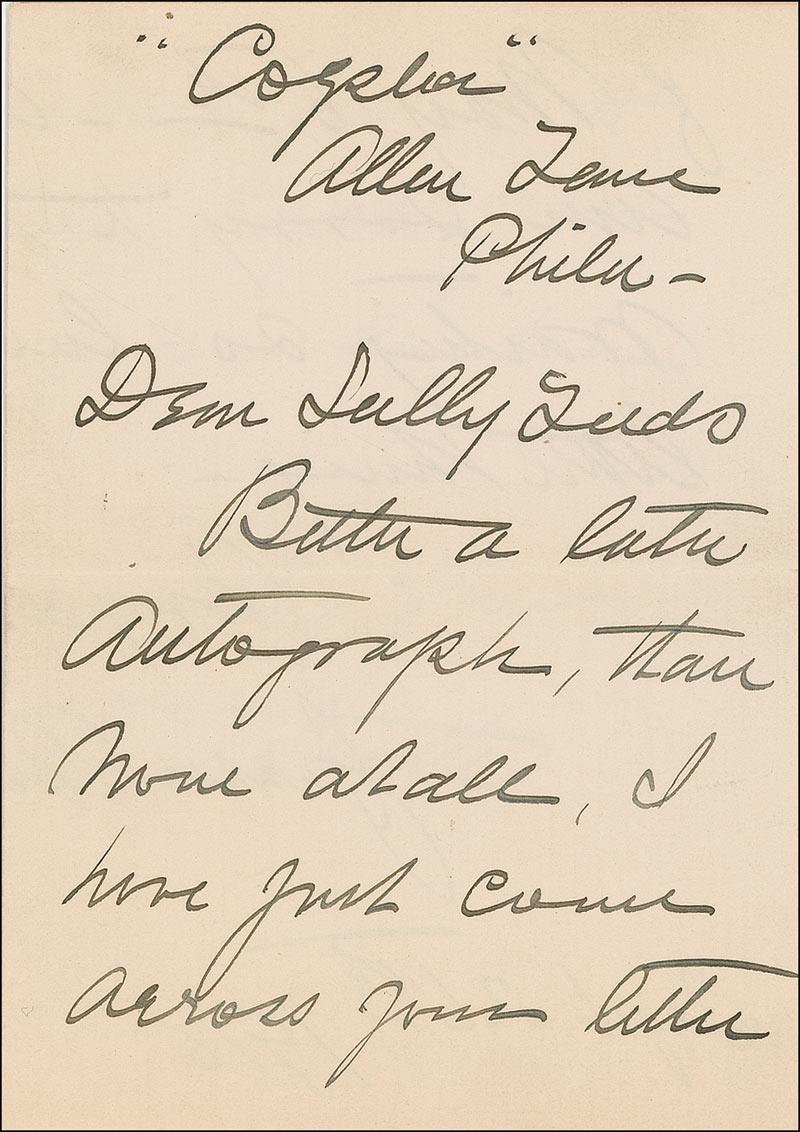 "Cogslea"
Allen Lane
Phila -
Dear Sally Leeds
Better a late
Autograph, than
None at all, I
have just come
across your letter